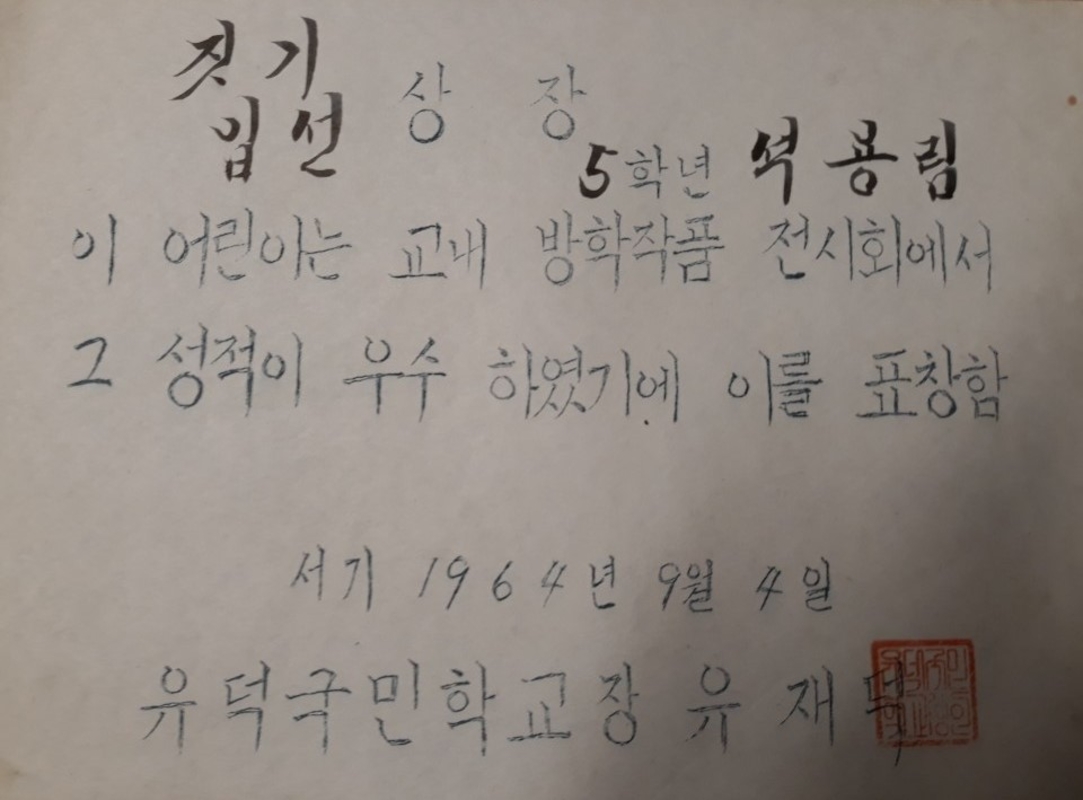 짓기
입선
상 장
5학년 석용림
이 어린이는 교내 방학작품 전시회에서
그 성적이 우수 하였기에 이를 표창함
서기 1964년 9월 4일
유덕국민학교장 유재덕